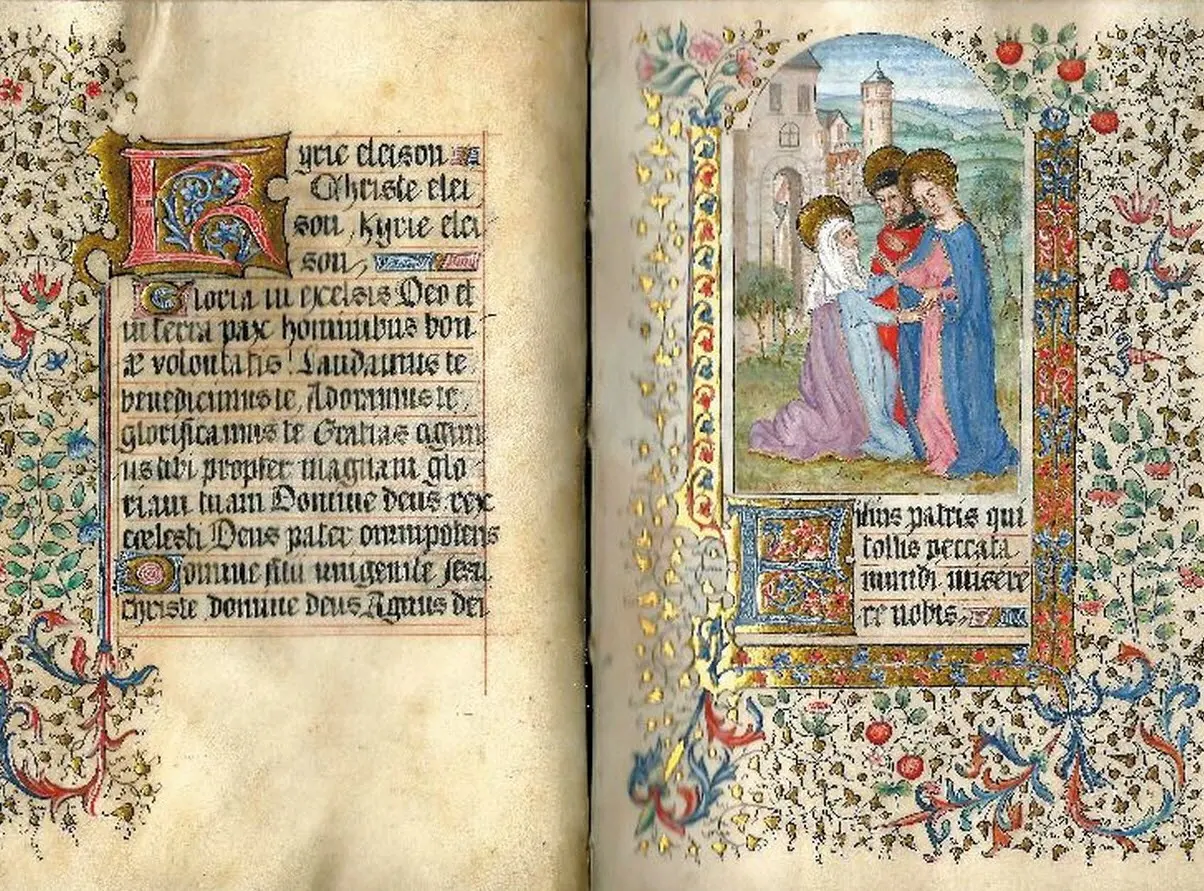 Kyrie eleison
Christe elei
son, Kyrie elei
son,
Gloria in excelsis Deo et
in terra pax hominibus bon
æ voluntatis! Laudamus te
benedicimus te, Adoramus te,
glorificamus te Gratias agim
us tibi propter magnam glo
riam tuam Domine deus rex
cœlesti Deus pater omnipotens
Domine fili unigenite Jesu
christe domine deus Agnus dei
Filius patris qui
tollis peccata
mundi misere
re nobis,